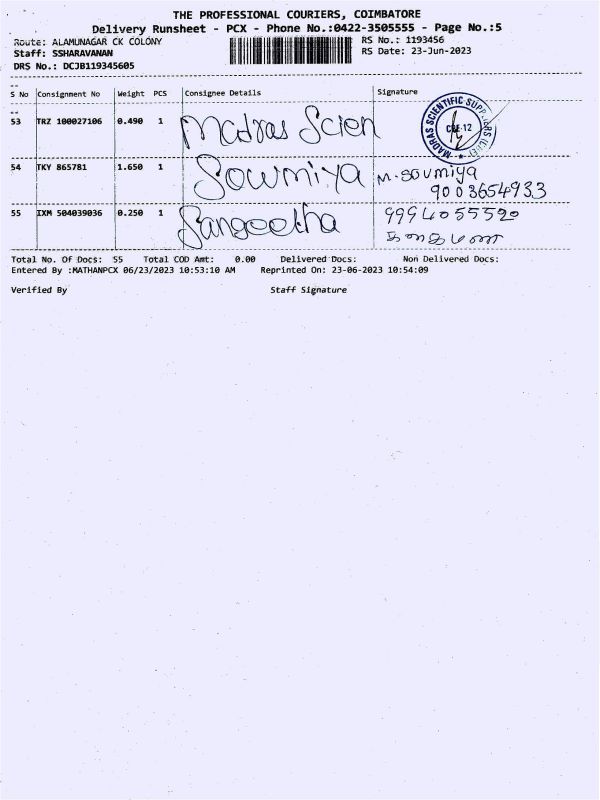 THE PROFESSIONAL COURIERS, COIMBATORE
Delivery Runsheet - PCX - Phone No.:0422-3505555 - Page No.:5
Route: ALAMUNAGAR CK COLONY
RS No.: 1193456
Staff: SSHARAVANAN
RS Date: 23-Jun-2023
DRS No.: DCJB119345605
S No Consignment No Weight PCS Consignee Details Signature
53 TRZ 100027106 0.490 1 Madras Scien
MADRAS SCIENTIFIC SUPPLIERS (CBE)
CBE-12
54 TKY 865781 1.650 1 Sowmiya M. Soumiya
9003654933
55 IXM 504039036 0.250 1 Sangeetha 9994055520
Total No. Of Docs: 55 Total COD Amt: 0.00 Delivered Docs: Non Delivered Docs:
Entered By :MATHANPCX 06/23/2023 10:53:10 AM Reprinted On: 23-06-2023 10:54:09
Verified By Staff Signature